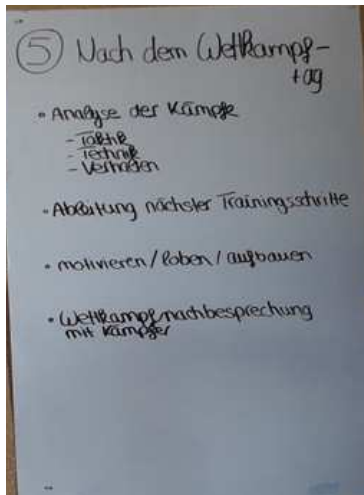 5 Nach dem Wettkampf-
tag
• Analyse der Kämpfe
- Taktik
- Technik
- Verhalten
• Ableitung nächster Trainingsschritte
• motivieren / loben / aufbauen
• Wettkampfnachbesprechung
mit Kämpfer